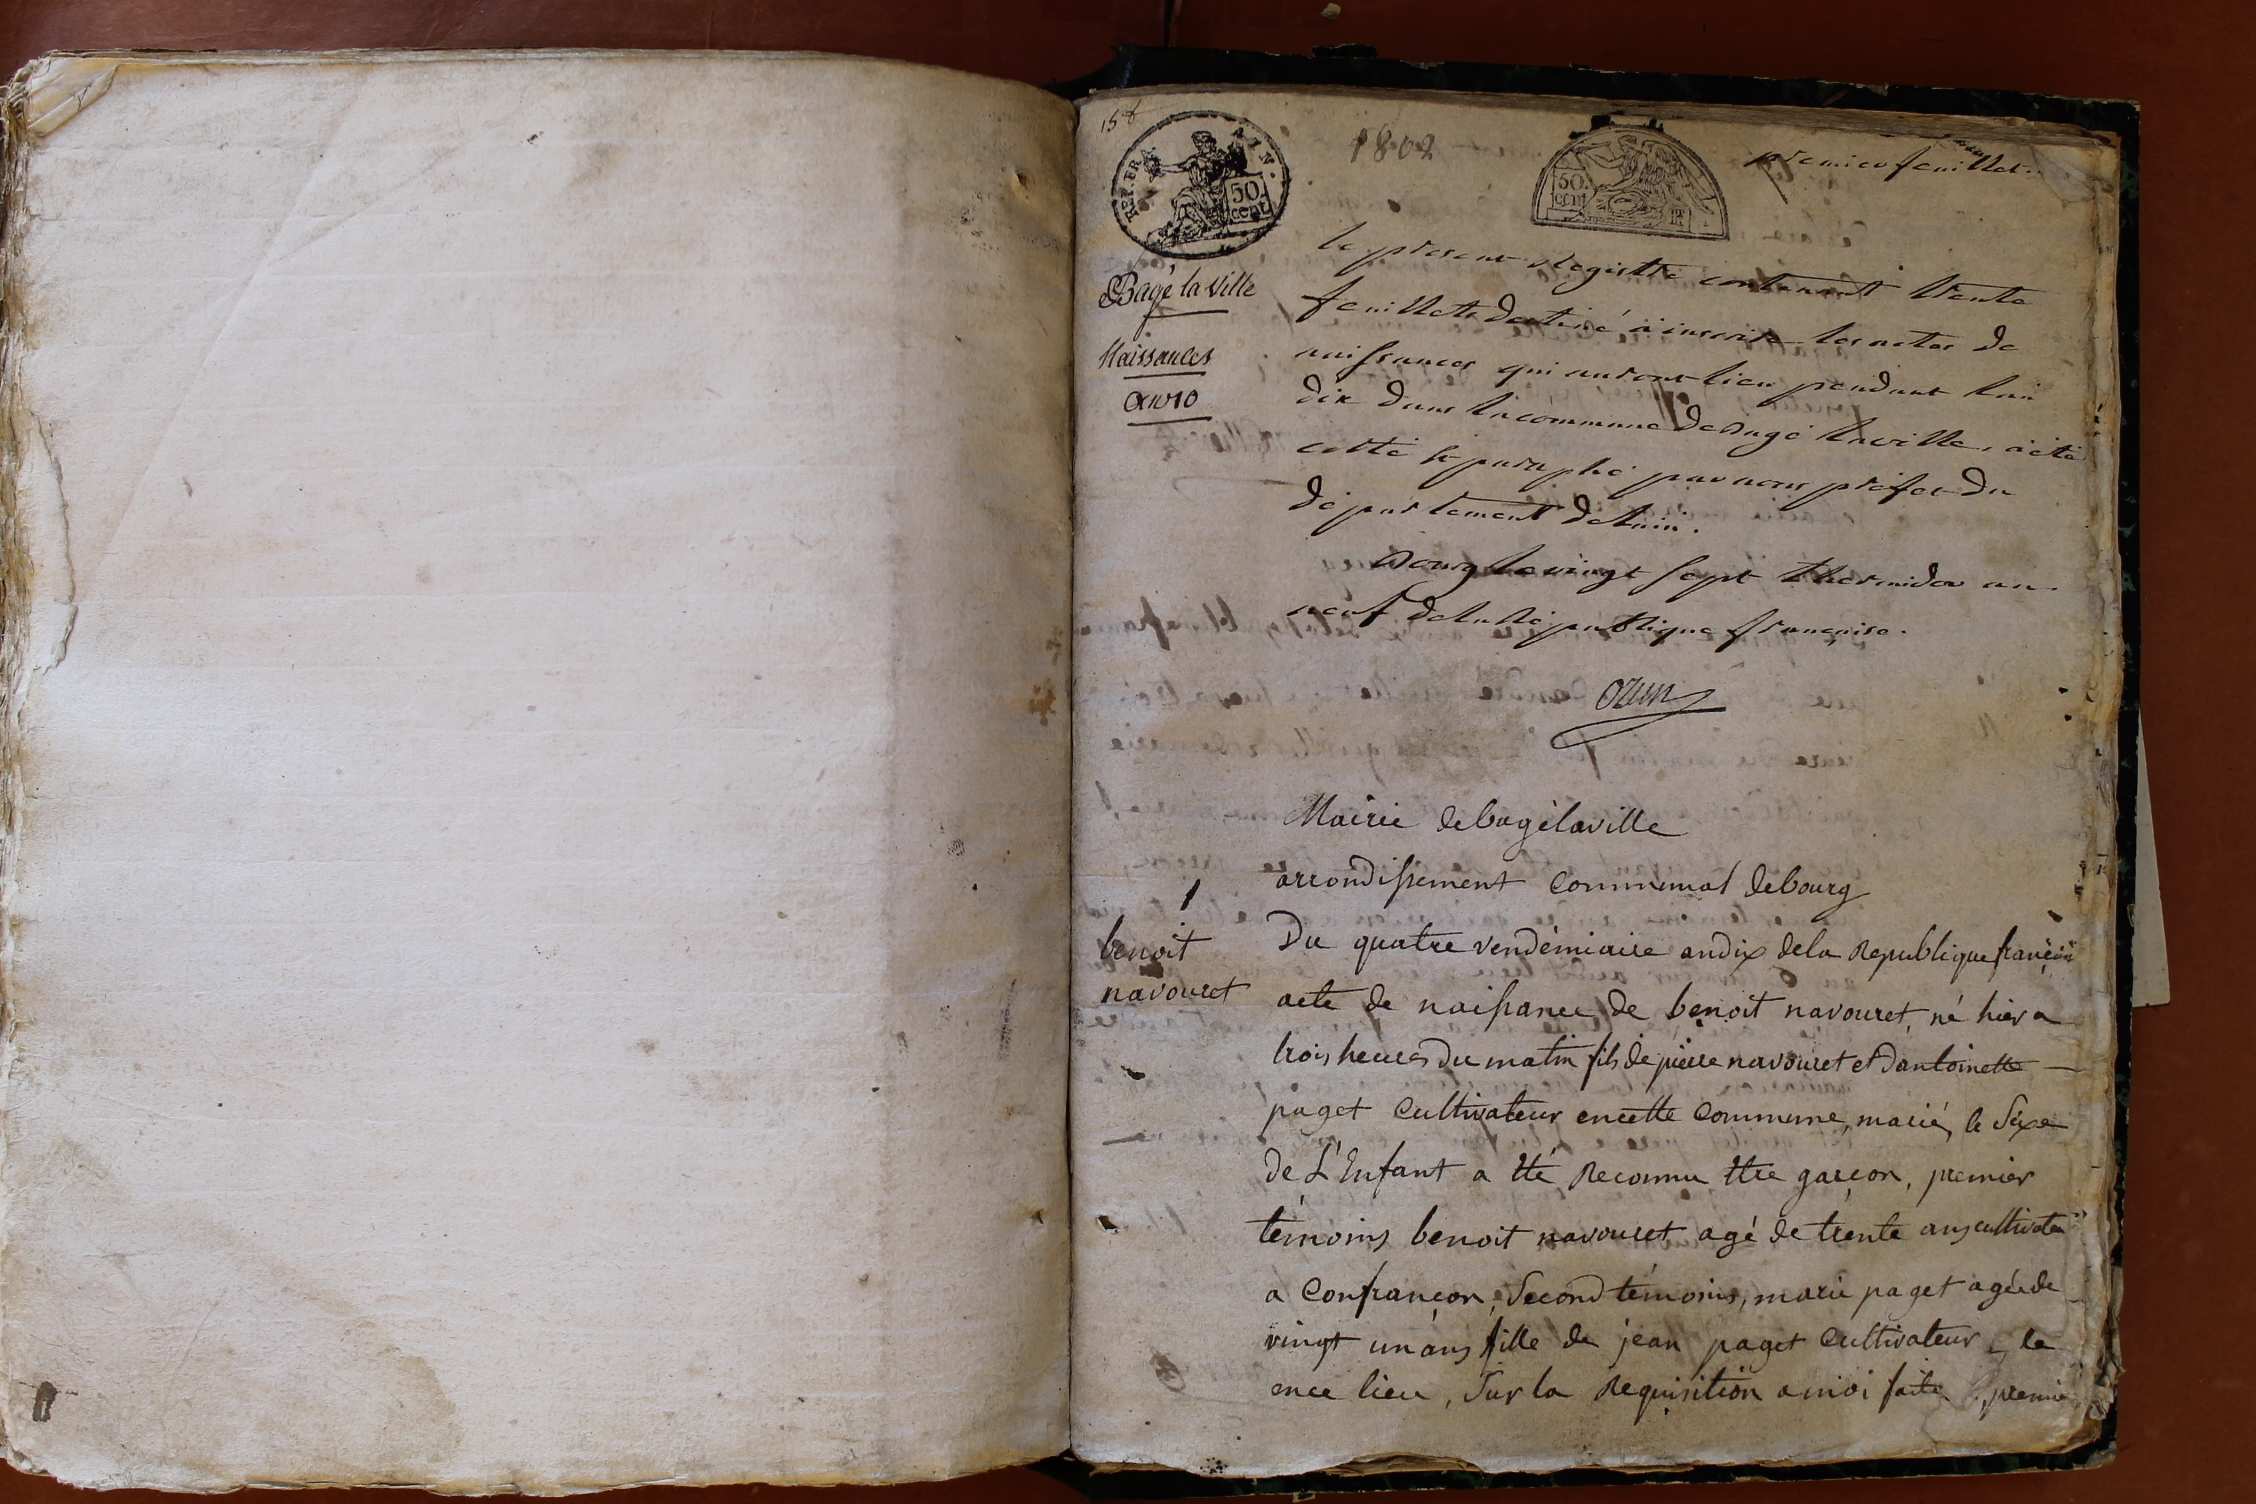 158
REP. FRA
50.
cent.
1802
50.
cent
RF
premier feuillet.
Bagé la Ville
Naissances
an 10
le present registre contenant trente
feuillets destiné a inscrire les actes de
naissances qui auront lieu pendant l'an
dix dans la commune de Bagé laville, a été
cotté et paraphé par nous préfet du
département de l'ain.
Bourg le vingt sept thermidor an
neuf de la République française.
Ozun
Mairie de bagé laville
arrondissement communal de bourg
1
benoit
navouret
Du quatre vendémiaire an dix de la Republique françoise
acte de naissance de benoit navouret, né hier a
trois heures du matin fils de pierre navouret et d'antoinette
paget cultivateur en cette commune, marié, le Séxe
de L'Enfant a été Reconnu être garçon, premier
témoins benoit navouret agé de trente ans cultivateur
a Confrançon, Second témoins, marie paget agée de
vingt un ans fille de jean paget cultivateur
en ce lieu, Sur la Requisition a moi faite